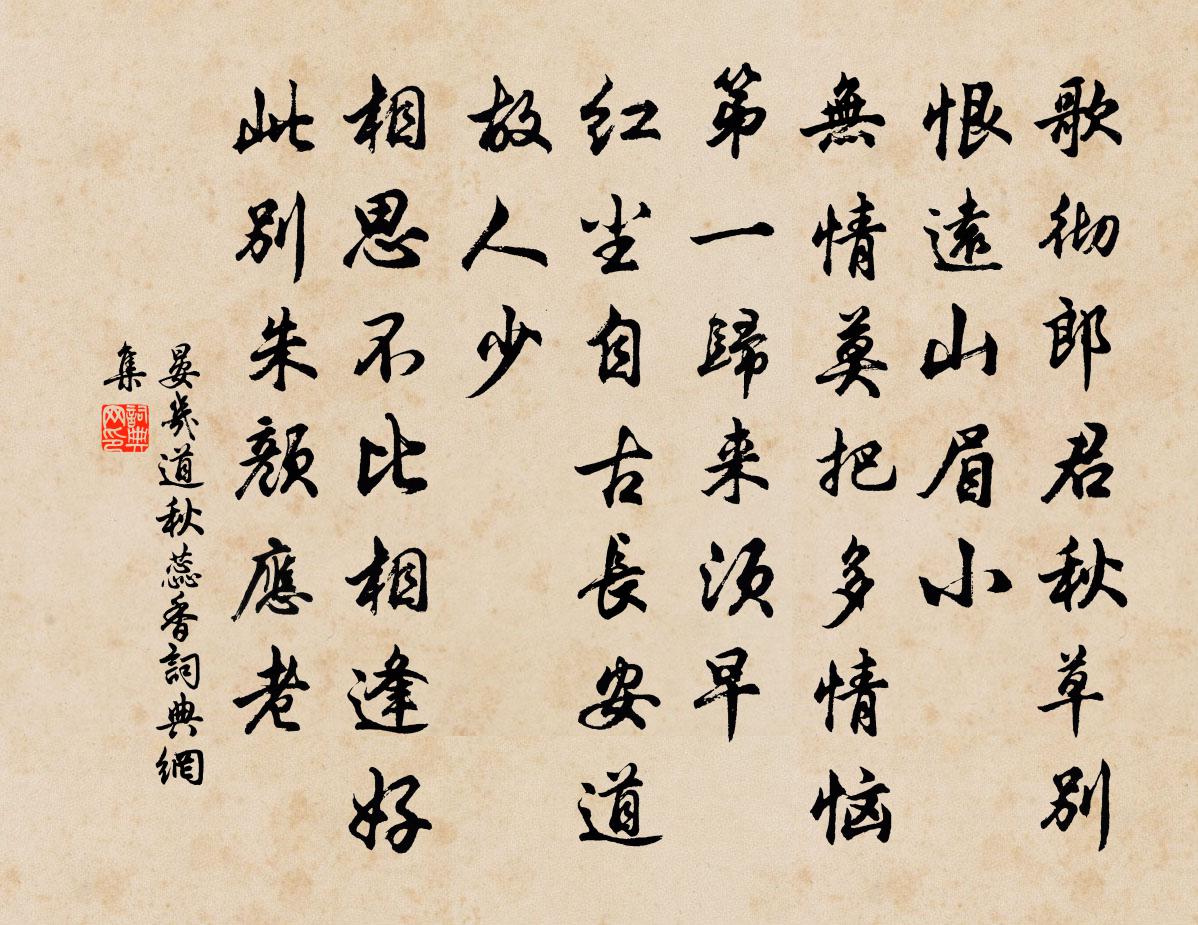 歌彻郎君秋草別
恨遠山眉小
無情莫把多情恼
第一歸来须早
红尘自古長安道
故人少
相思不比相逢好
此別朱颜應老
晏幾道秋蕊香詞典網
集
詞典网印